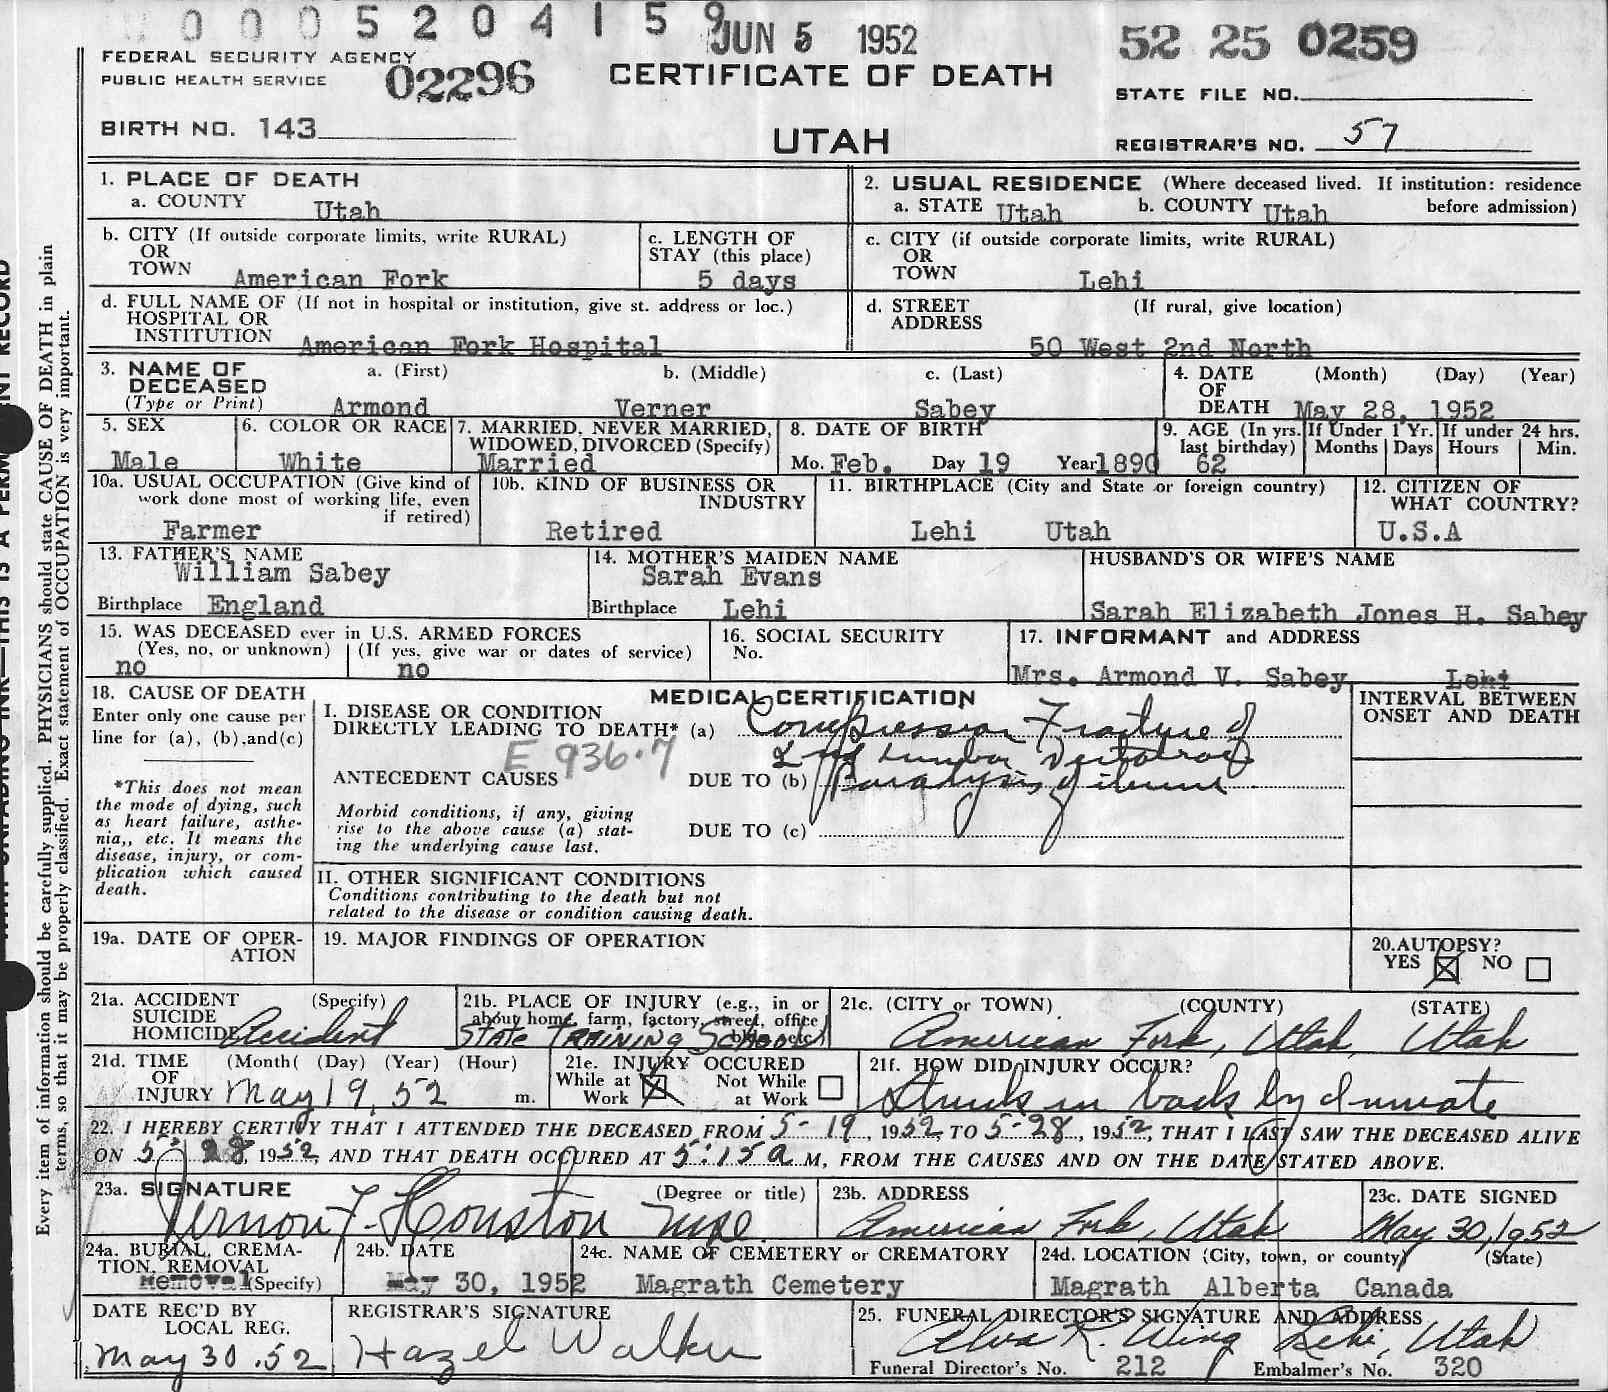 0 0 0 5 2 0 4 1 5 9
JUN 5 1952
52 25 0259
FEDERAL SECURITY AGENCY
PUBLIC HEALTH SERVICE
02296
CERTIFICATE OF DEATH
STATE FILE NO.
BIRTH NO. 143
UTAH
REGISTRAR'S NO. 57
1. PLACE OF DEATH
a. COUNTY Utah
2. USUAL RESIDENCE (Where deceased lived. If institution: residence before admission)
a. STATE Utah b. COUNTY Utah
b. CITY (If outside corporate limits, write RURAL)
OR
TOWN American Fork
c. LENGTH OF
STAY (this place)
5 days
c. CITY (if outside corporate limits, write RURAL)
OR
TOWN Lehi
d. FULL NAME OF (If not in hospital or institution, give st. address or loc.)
HOSPITAL OR
INSTITUTION American Fork Hospital
d. STREET (If rural, give location)
ADDRESS
50 West 2nd North
3. NAME OF
DECEASED
(Type or Print)
a. (First) b. (Middle) c. (Last)
Armond Verner Sabey
4. DATE (Month) (Day) (Year)
OF
DEATH May 28, 1952
5. SEX
Male
6. COLOR OR RACE
White
7. MARRIED, NEVER MARRIED,
WIDOWED, DIVORCED (Specify)
Married
8. DATE OF BIRTH
Mo. Feb. Day 19 Year 1890
9. AGE (In yrs.
last birthday)
62
If Under 1 Yr.
Months Days
If under 24 hrs.
Hours Min.
10a. USUAL OCCUPATION (Give kind of
work done most of working life, even
if retired)
Farmer
10b. KIND OF BUSINESS OR
INDUSTRY
Retired
11. BIRTHPLACE (City and State or foreign country)
Lehi Utah
12. CITIZEN OF
WHAT COUNTRY?
U.S.A
13. FATHER'S NAME
William Sabey
Birthplace England
14. MOTHER'S MAIDEN NAME
Sarah Evans
Birthplace Lehi
HUSBAND'S OR WIFE'S NAME
Sarah Elizabeth Jones H. Sabey
15. WAS DECEASED ever in U.S. ARMED FORCES
(Yes, no, or unknown) (If yes, give war or dates of service)
no no
16. SOCIAL SECURITY
No.
17. INFORMANT and ADDRESS
Mrs. Armond V. Sabey Lehi
18. CAUSE OF DEATH
Enter only one cause per
line for (a), (b),and(c)
*This does not mean
the mode of dying, such
as heart failure, asthe-
nia,, etc. It means the
disease, injury, or com-
plication which caused
death.
MEDICAL CERTIFICATION
I. DISEASE OR CONDITION
DIRECTLY LEADING TO DEATH* (a) Compression Fracture of
2nd Lumbar Vertebrae
E 936.7
ANTECEDENT CAUSES DUE TO (b) Paralysis of ileum
Morbid conditions, if any, giving
rise to the above cause (a) stat-
ing the underlying cause last.
DUE TO (c)
INTERVAL BETWEEN
ONSET AND DEATH
II. OTHER SIGNIFICANT CONDITIONS
Conditions contributing to the death but not
related to the disease or condition causing death.
19a. DATE OF OPER-
ATION
19. MAJOR FINDINGS OF OPERATION
20.AUTOPSY?
YES ☒ NO ☐
21a. ACCIDENT (Specify)
SUICIDE
HOMICIDE Accident
21b. PLACE OF INJURY (e.g., in or
about home, farm, factory, street, office
bldg., etc.)
STATE TRAINING School
21c. (CITY or TOWN) (COUNTY) (STATE)
American Fork, Utah, Utah
21d. TIME (Month( (Day) (Year) (Hour)
OF
INJURY May 19, 52 m.
21e. INJURY OCCURED
While at Work ☒ Not While at Work ☐
21f. HOW DID INJURY OCCUR?
Struck in back by Inmate
22. I HEREBY CERTIFY THAT I ATTENDED THE DECEASED FROM 5-19, 1952, TO 5-28, 1952, THAT I LAST SAW THE DECEASED ALIVE
ON 5 28, 1952, AND THAT DEATH OCCURED AT 5:15 a M, FROM THE CAUSES AND ON THE DATE STATED ABOVE.
23a. SIGNATURE (Degree or title)
Vernon F. Houston
23b. ADDRESS
American Fork, Utah
23c. DATE SIGNED
May 30, 1952
24a. BURIAL, CREMA-
TION, REMOVAL
Removal (Specify)
24b. DATE
May 30, 1952
24c. NAME OF CEMETERY or CREMATORY
Magrath Cemetery
24d. LOCATION (City, town, or county) (State)
Magrath Alberta Canada
DATE REC'D BY
LOCAL REG.
May 30.52
REGISTRAR'S SIGNATURE
Hazel Walker
25. FUNERAL DIRECTOR'S SIGNATURE AND ADDRESS
Elva R. Wing Lehi, Utah
Funeral Director's No. 212 Embalmer's No. 320
Every item of information should be carefully supplied. PHYSICIANS should state CAUSE OF DEATH in plain
terms, so that it may be properly classified. Exact statement of OCCUPATION is very important.